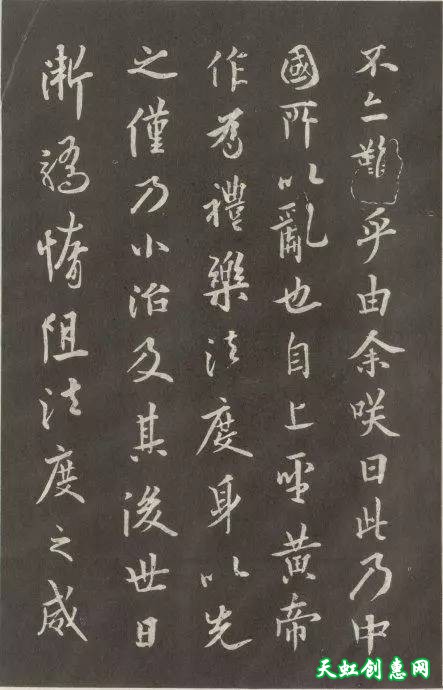 不亦難乎由余咲曰此乃中
國所以亂也自上聖黃帝
作為禮樂法度身以先
之僅乃小治及其後世日
漸驕惰阻法度之威
天虹创惠网